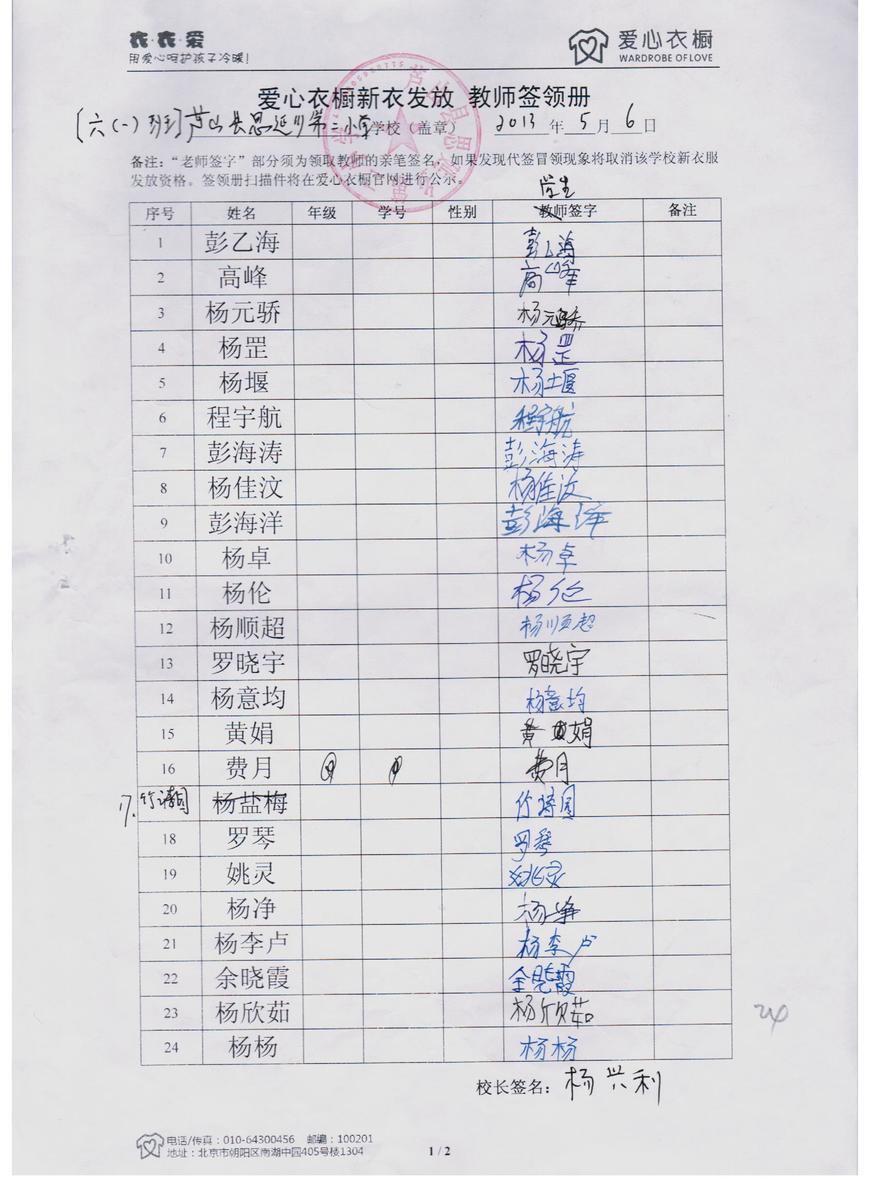 衣·衣·爱
用爱心呵护孩子冷暖!
爱心衣橱
WARDROBE OF LOVE
爱心衣橱新衣发放 教师签领册
[六(一)班]芦山县思延乡第二小学学校（盖章） 2013 年 5 月 6 日
备注：“老师签字”部分须为领取教师的亲笔签名，如果发现代签冒领现象将取消该学校新衣服
发放资格。签领册扫描件将在爱心衣橱官网进行公示。
学生
序号 姓名 年级 学号 性别 教师签字 备注
1 彭乙海 彭乙海
2 高峰 高峰
3 杨元骄 杨元骄
4 杨罡 杨罡
5 杨堰 杨堰
6 程宇航 程宇航
7 彭海涛 彭海涛
8 杨佳汶 杨佳汶
9 彭海洋 彭海洋
10 杨卓 杨卓
11 杨伦 杨伦
12 杨顺超 杨顺超
13 罗晓宇 罗晓宇
14 杨意均 杨意均
15 黄娟 黄娟
16 费月 费月
17. 竹诗园 杨盐梅 竹诗园
18 罗琴 罗琴
19 姚灵 姚灵
20 杨净 杨净
21 杨李卢 杨李卢
22 余晓霞 余晓霞
23 杨欣茹 杨欣茹
24 杨杨 杨杨
24
校长签名：杨兴利
电话/传真：010-64300456 邮编：100201
地址：北京市朝阳区南湖中园405号楼1304
1 / 2